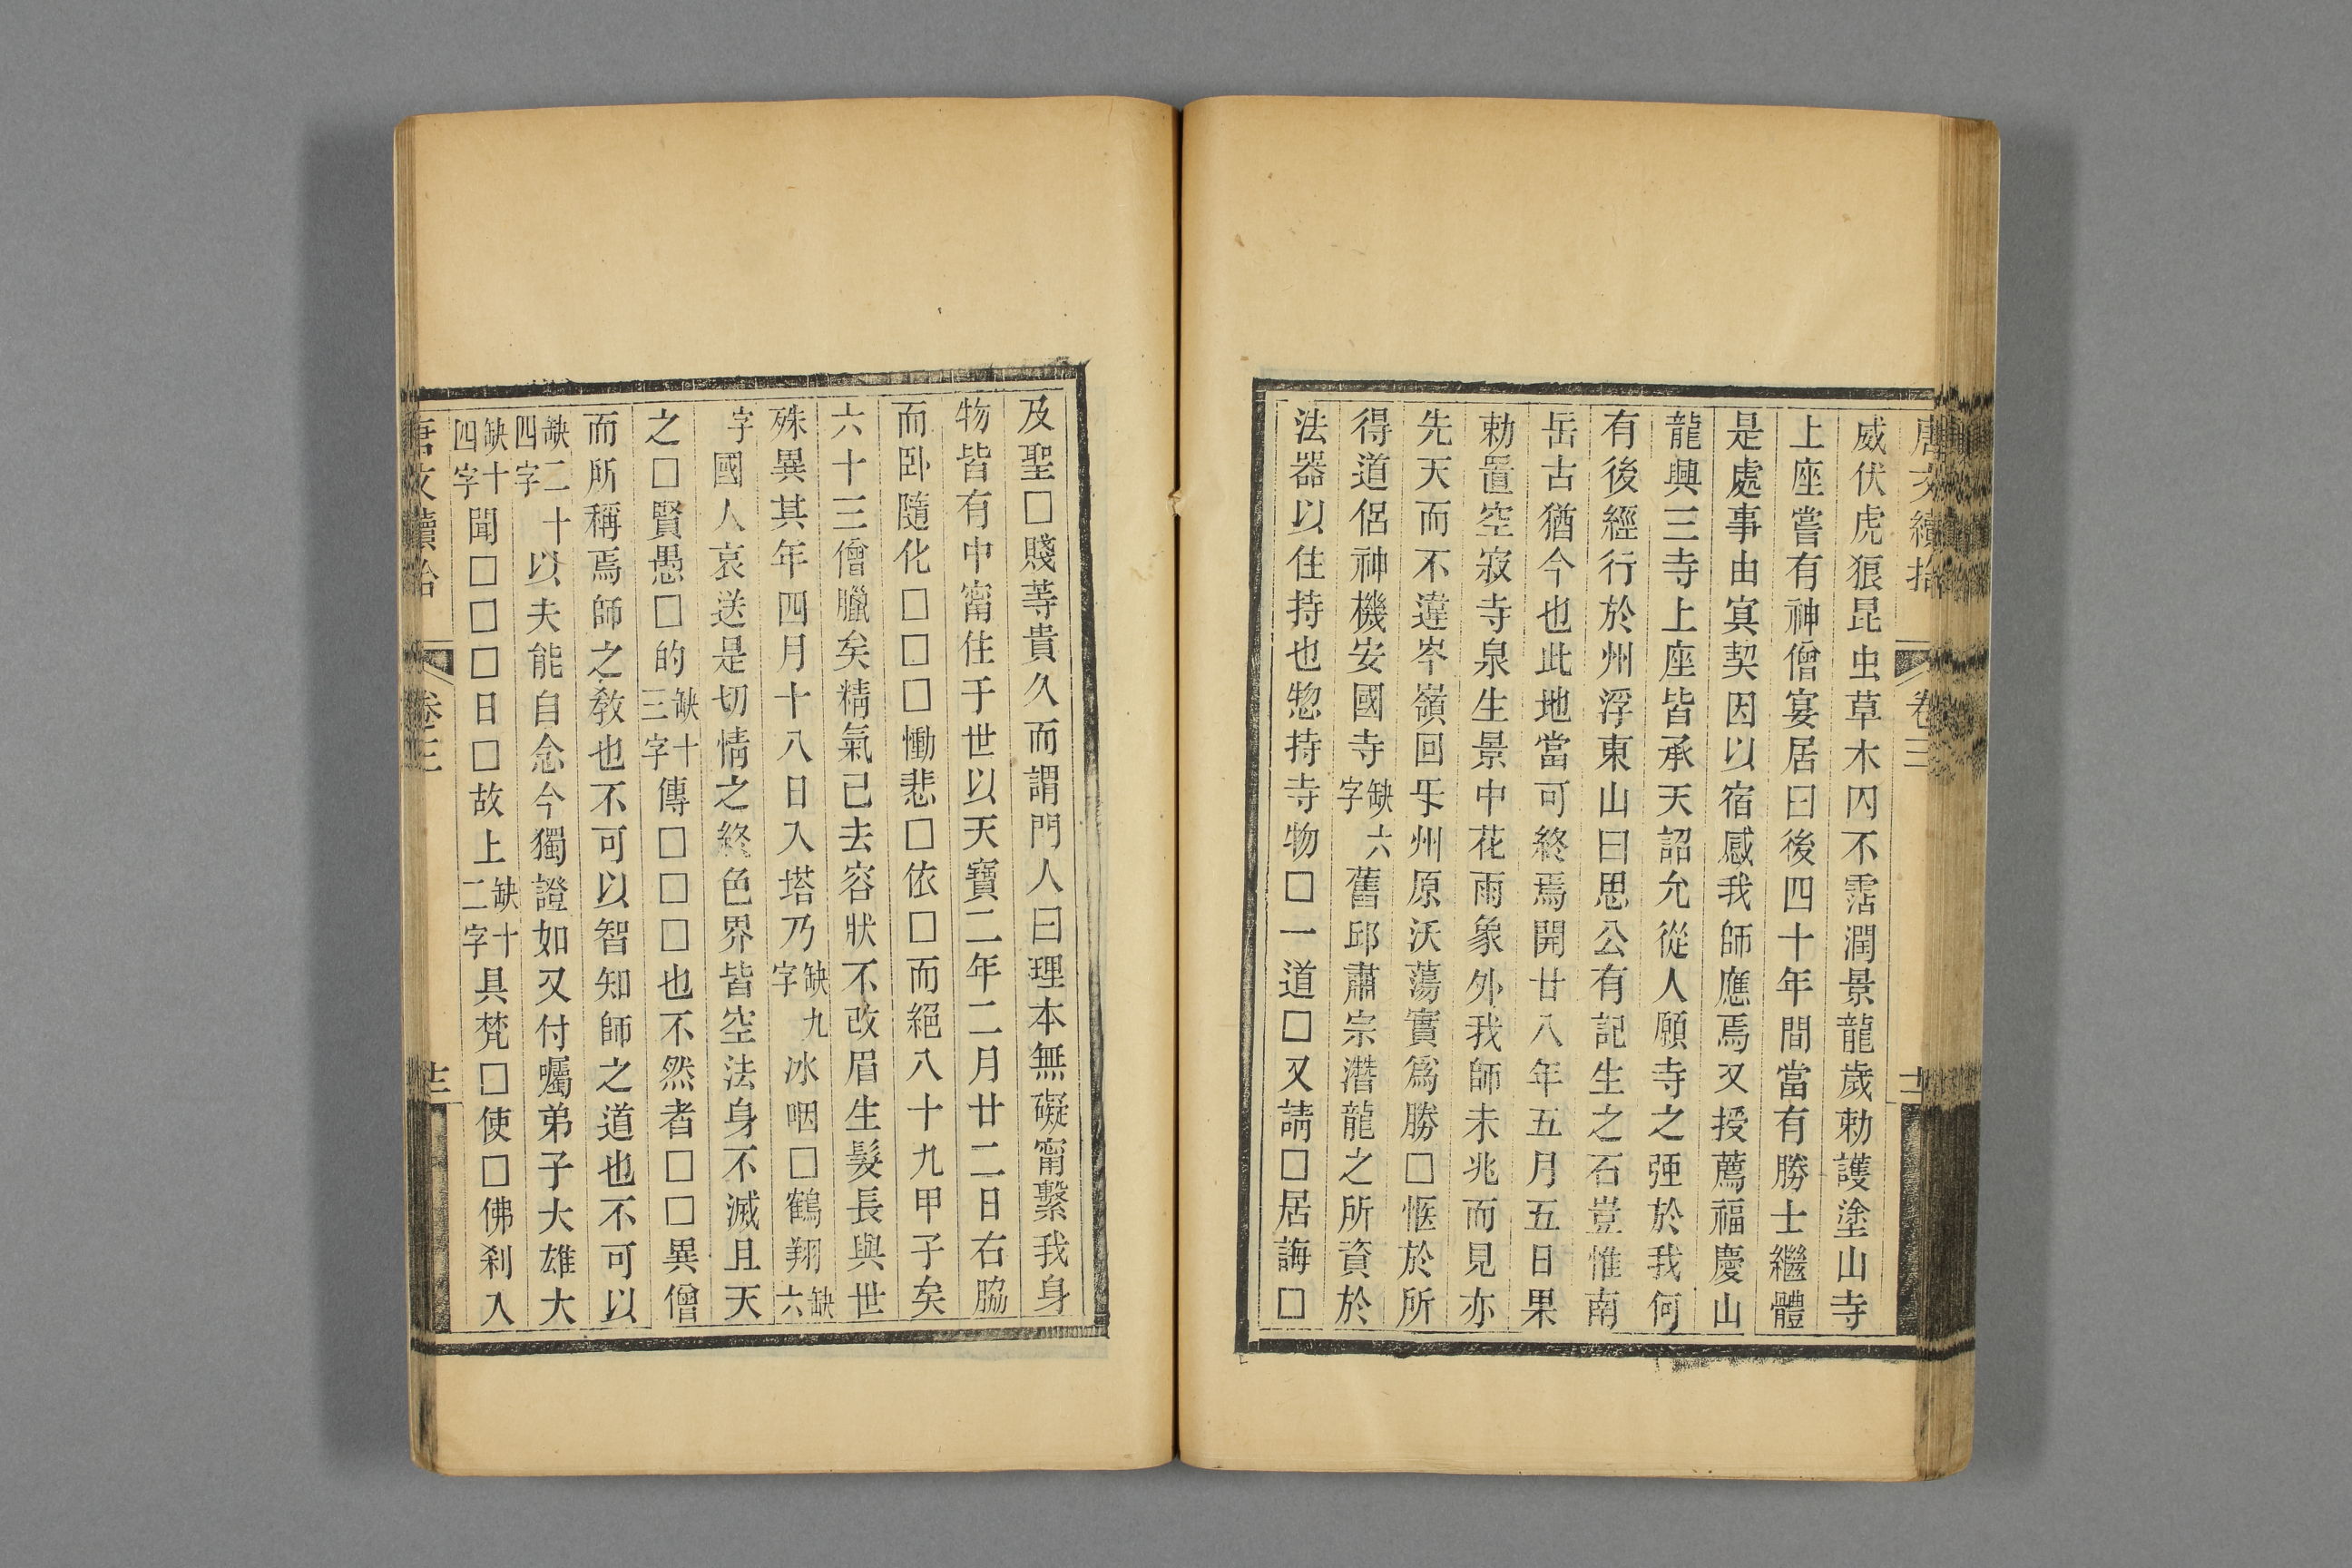 唐文續拾 卷三 十二
威伏虎狼昆虫草木罔不霑潤景龍歲勅護塗山寺
上座嘗有神僧宴居曰後四十年間當有勝士繼體
是處事由寘契因以宿感我師應焉又授薦福慶山
龍興三寺上座皆承天詔允從人願寺之弫於我何
有後經行於州浮東山曰思公有記生之石豈惟南
岳古猶今也此地當可終焉開廿八年五月五日果
勅置空寂寺泉生景中花雨象外我師未兆而見亦
先天而不違岑嶺回㸦州原沃蕩實爲勝□惬於所
得道侶神機安國寺缺六字舊邱肅宗潛龍之所資於
法器以住持也惣持寺物□一道□又請□居誨□
及聖□賤等貴久而謂門人曰理本無礙甯繫我身
物皆有中甯住于世以天寶二年二月廿二日右脇
而卧隨化□□□慟悲□依□而絕八十九甲子矣
六十三僧臘矣精氣已去容狀不改眉生髮長與世
殊異其年四月十八日入塔乃缺九字冰咽□鶴翔缺六
字國人哀送是切情之終色界皆空法身不滅且天
之□賢愚□的缺十三字傳□□□也不然者□□異僧
而所稱焉師之教也不可以智知師之道也不可以
缺二十四字以夫能自念今獨證如又付囑弟子大雄大
缺十四字聞□□□日□故上缺十二字具梵□使□佛刹入
唐文續拾 卷三 十三